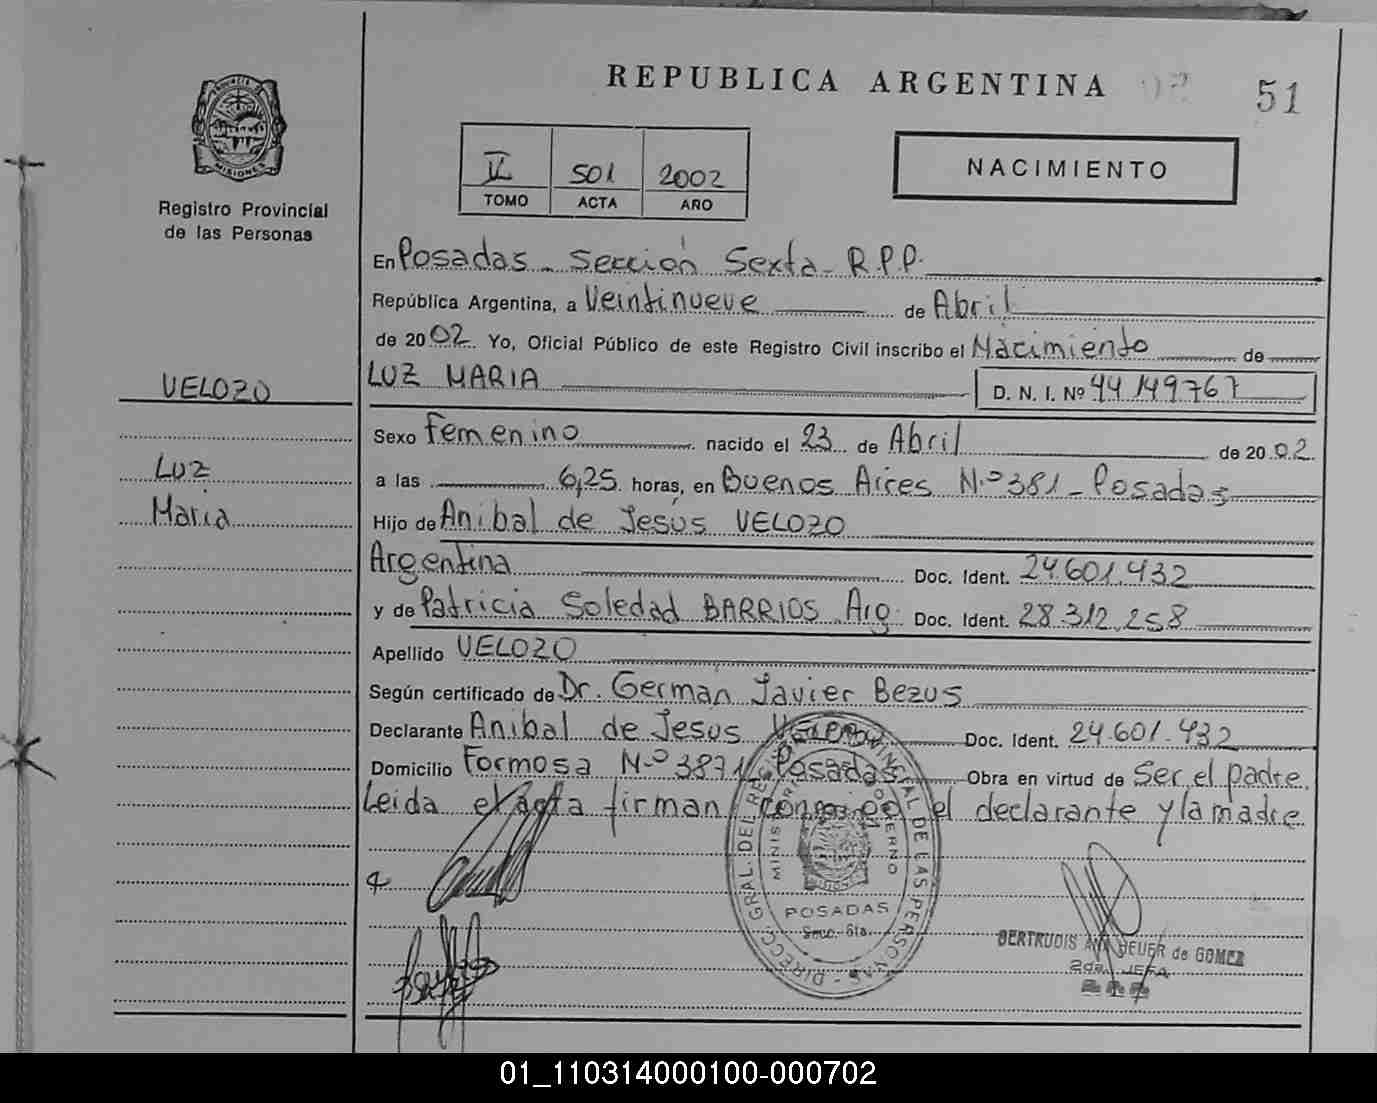 REPUBLICA ARGENTINA
51
PROVINCIA DE MISIONES
Registro Provincial
de las Personas
II 501 2002
TOMO ACTA AÑO
NACIMIENTO
En Posadas - Sección Sexta - R.P.P.
República Argentina, a Veintinueve de Abril
de 2002 Yo, Oficial Público de este Registro Civil inscribo el Nacimiento de
VELOZO
LUZ MARIA D. N. I. Nº 44.149.767
Sexo Femenino nacido el 23 de Abril de 2002.
Luz
Maria
a las 6,25 horas, en Buenos Aires N.º 381 - Posadas
Hijo de Anibal de Jesús VELOZO
Argentina Doc. Ident. 24.601.432
y de Patricia Soledad BARRIOS Arg. Doc. Ident. 28.312.258
Apellido VELOZO
Según certificado de Dr. Germán Javier Bezus
Declarante Anibal de Jesus Velozo Doc. Ident. 24.601.432
Domicilio Formosa N.º 3871 Posadas Obra en virtud de Ser el padre.
Leida el acta firman conmigo el declarante y la madre
DIRECC. GRAL. DEL REGISTRO PROVINCIAL DE LAS PERSONAS
POSADAS
Secc. 6ta.
GERTRUDIS HEUER de GOMEZ
2da. JEFA
01_110314000100-000702